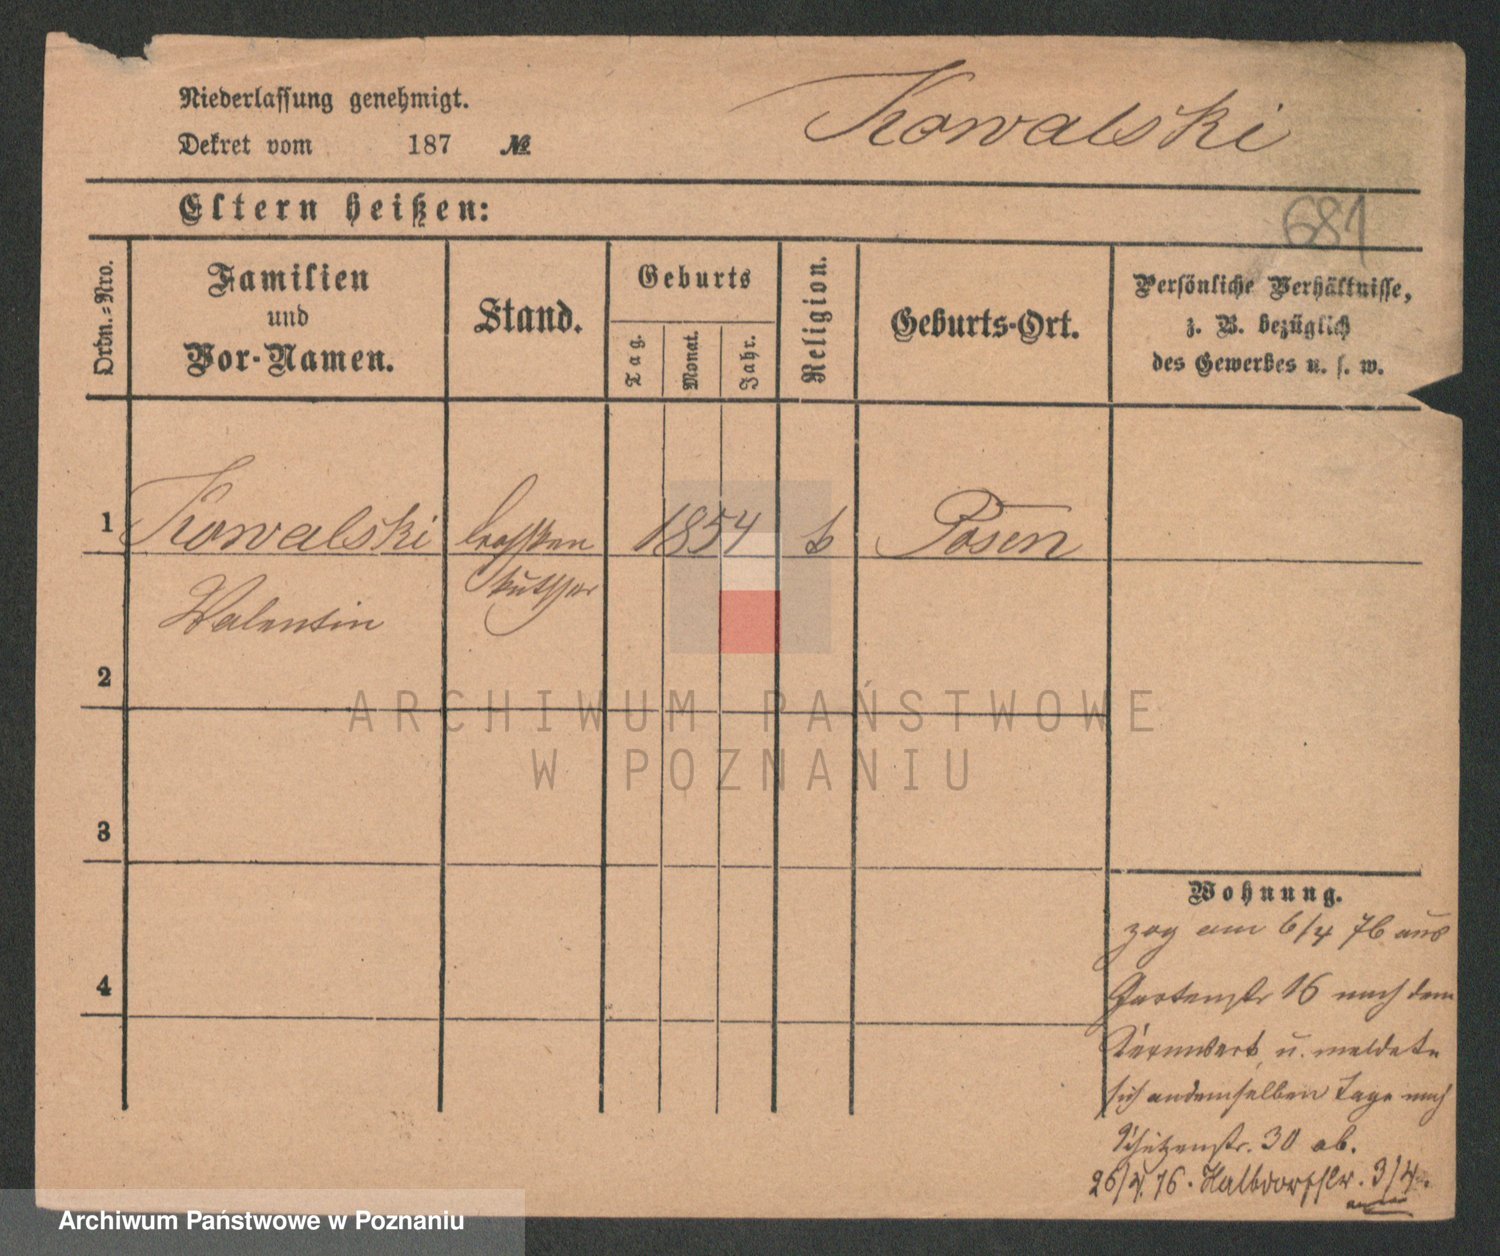 Niederlassung genehmigt.
Kowalski
Dekret vom 187 №
Eltern heißen:
681
Ordn.-Nro.
Familien
und
Vor-Namen.
Stand.
Geburts
Tag.
Monat.
Jahr.
Religion.
Geburts-Ort.
Persönliche Verhältnisse,
z. B. bezüglich
des Gewerbes u. s. w.
1 Kowalski 1854 k Posen
Valentin
2
ARCHIWUM PAŃSTWOWE
W POZNANIU
3
Wohnung.
zog am 6/4 76 aus
4
Gartenstr 16 nach dem
u. meldete
sich an demselben Tage nach
Schützenstr. 30 ab.
26/4. 76. Halbdorfstr. 3/4.
Archiwum Państwowe w Poznaniu